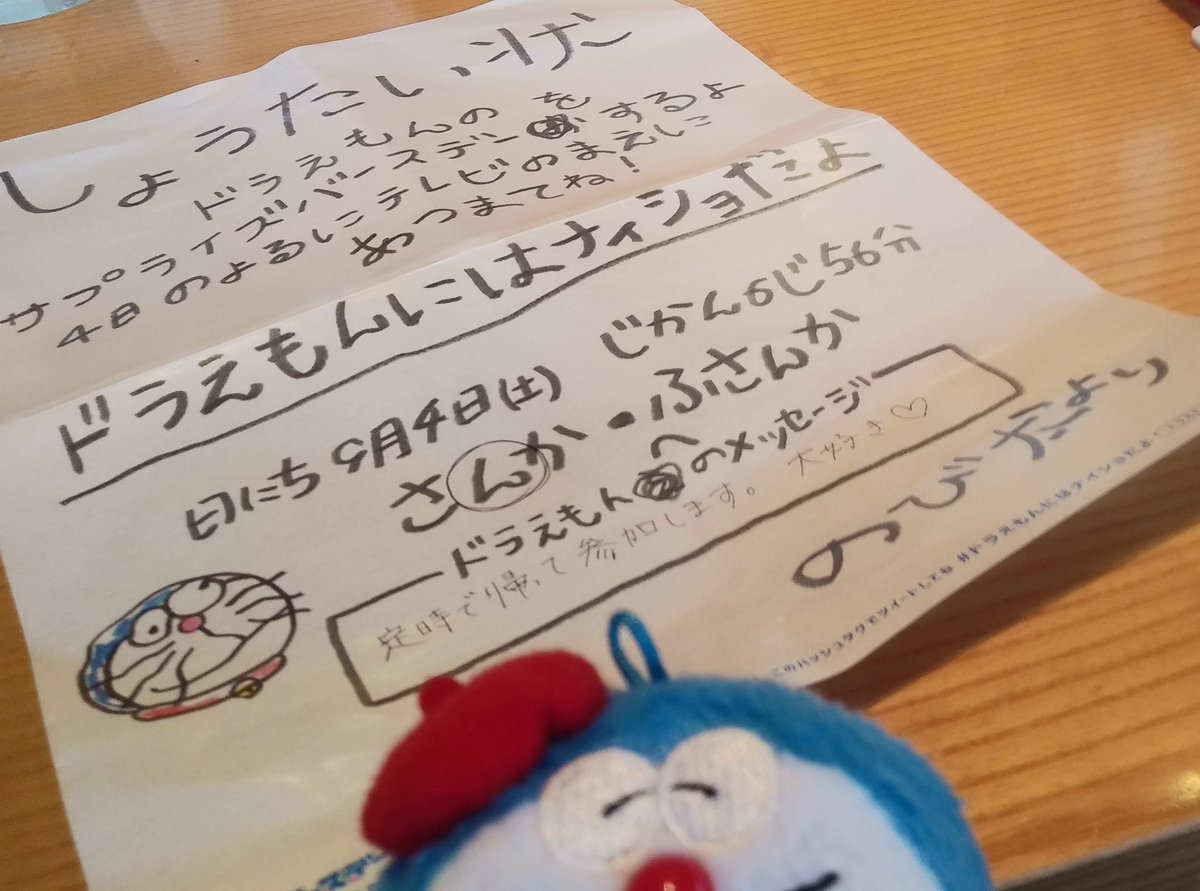 しょうたい状
ドラえもんの
サプライズバースデーをするよ
4日のよるにテレビのまえに
あつまてね!
ドラえもんにはナイショだよ
日にち 9月4日(土) じかん6じ56分
さんか・ふさんか
ドラえもんへのメッセージ
定時で帰って参加します。大好き♡
のびだより
このハッシュタグをツイートしてね #ドラえもんにはナイショだよ